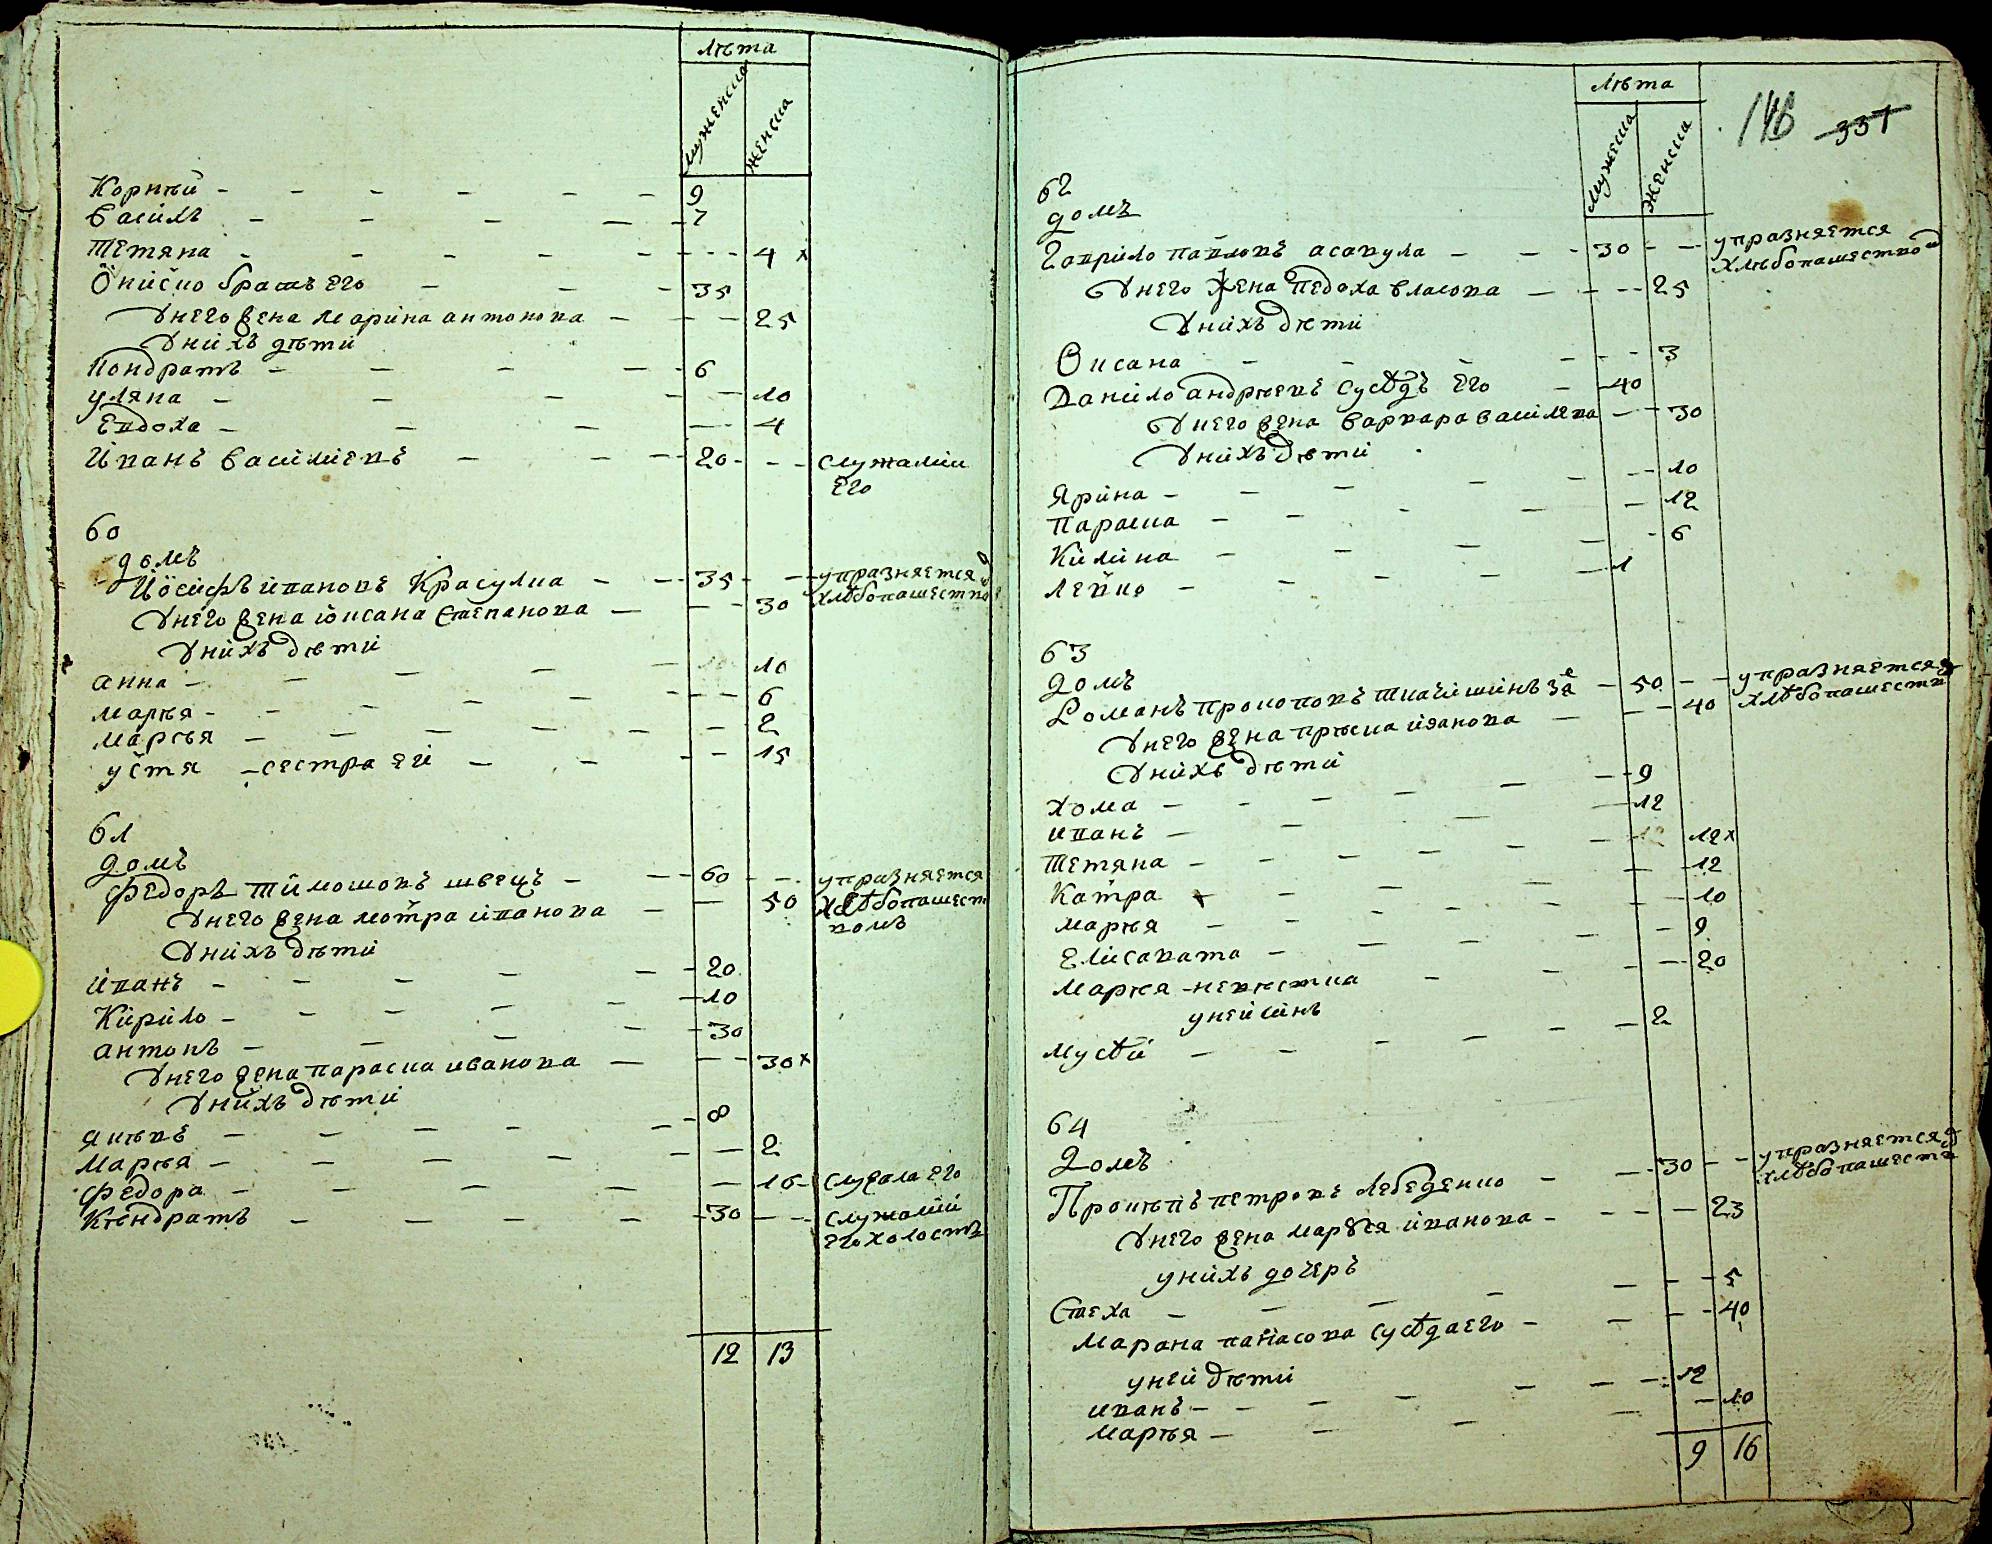 лѣта
мужеска
женска
Корнѣй - - - - - - 9
Василь - - - - - 7
Тетяна - - - - - - 4 х
Ониско братъ его - - - 35
Унего жена марина антонова - - - 25
Унихъ дѣти
Кондратъ - - - - 6
уляна - - - - - 10
Евдоха - - - - 4
Иванъ василиевъ - - - 20 - - - служалій
его
60
домъ
Иосифъ ивановъ Красулка - - - 35 - - упразняется
хлѣбопашество
Унего жена юксана степанова - - - 30
Унихъ дѣти
анна - - - - - 10
марѣя - - - - - - - 6
марѣя - - - - - - 2
устя - сестра ей - - - - 15
61
домъ
Федоръ тимошовъ швецъ - - - 60 - - упразняется
хлѣбопашест
вомъ
Унего жена мотра иванова - - 50
Унихъ дѣти
иванъ - - - - - - 20
Кирило - - - - - - 10
антонъ - - - - - 30
Унего жена параска иванова - - - 30 х
Унихъ дѣти
якѣвъ - - - - - - 8
Марѣя - - - - - - - 2
Федора - - - - - - 16 - служала его
Кѣндратъ - - - - - 30 - - - служалій
его холостъ
12 13
лѣта
мужеска
женска
146 331
62
домъ
Гаврило павловъ асавула - - - 30 - - упразняется
хлѣбопашество
Унего жена Педоха власова - - - - 25
Унихъ дѣти
Оксана - - - - - - - 3
Данило андрѣевъ сусѣдъ его - - 40
Унего жена варвара василѣва - - 30
Унихъ дѣти
Ярина - - - - - - - 10
Параска - - - - - - 12
Килина - - - - - - 6
Левко - - - - - 1
63
домъ
Романъ прокоповъ ткачишинъ зя - 50 - - упразняется
хлѣбопашеств
Унего жена прѣска иванова - - - 40
Унихъ дѣти
Хома - - - - - - - 9
иванъ - - - - - - 12
Тетяна - - - - - - 12 х
Катра - - - - - - - 12
марѣя - - - - - - - 10
Елисавата - - - - - - 9
марѣя - невѣстка - - - - 20
уней синъ
Мусѣй - - - - - - 2
64
домъ
Прокѣпъ петровъ Лебеденко - - 30 - - упразняется
хлѣбопашеств
Унего жена марѣя иванова - - - - 23
унихъ дочеръ
Стеха - - - - - - - 5
Марана панасова сусѣда его - - - - 40
уней дѣти
иванъ - - - - - - - 12
марѣя - - - - - 10
9 16